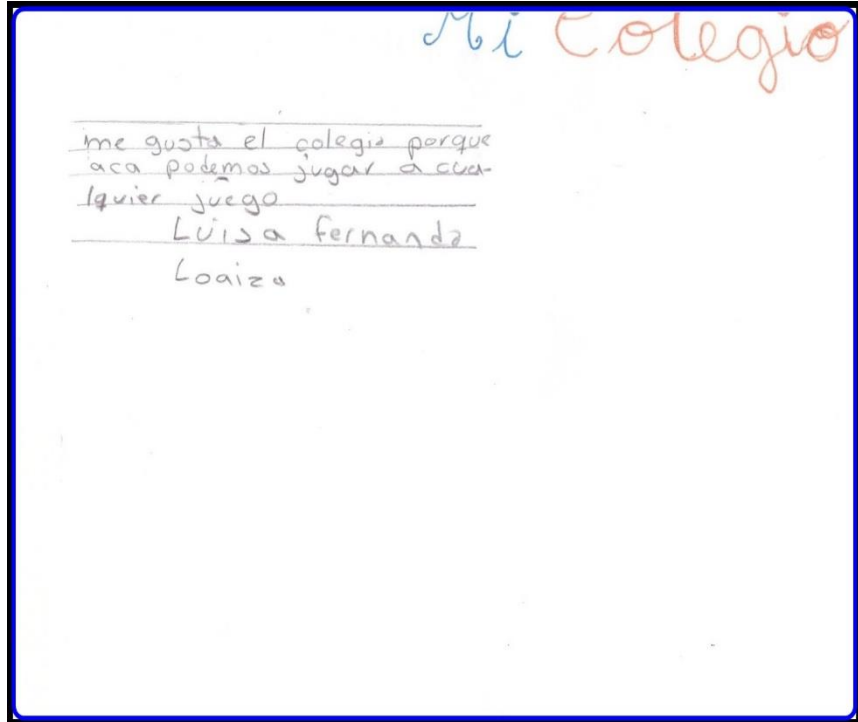 Mi Colegio
me gusta el colegio porque
aca podemos jugar a cua-
lquier juego
Luisa fernanda
Loaiza